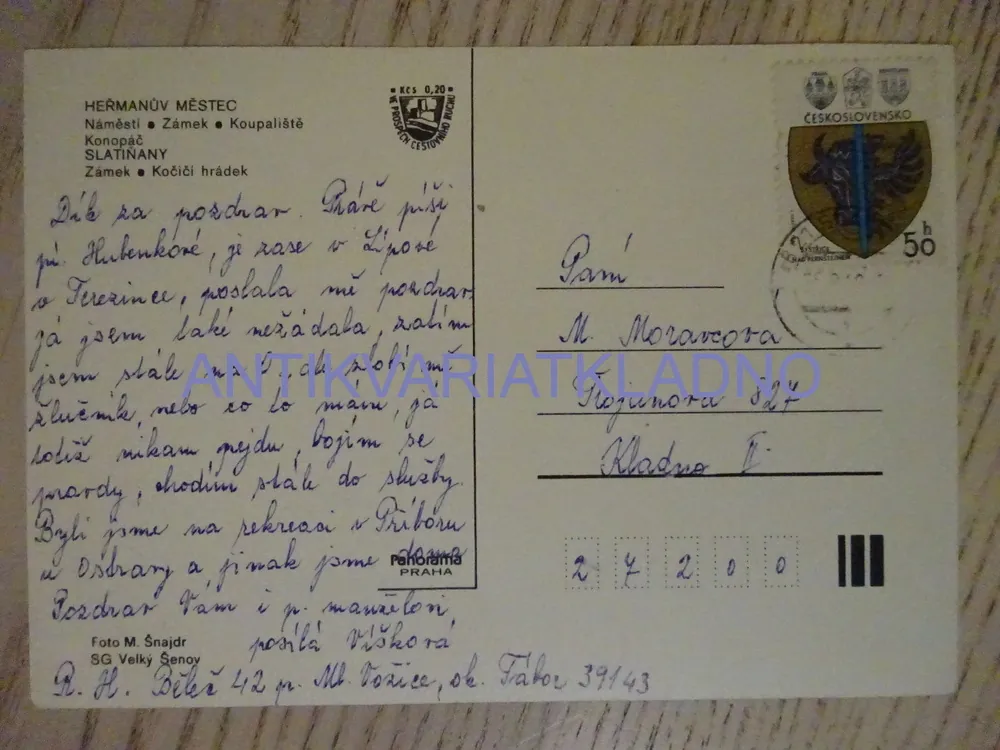 HEŘMANŮV MĚSTEC
Náměstí • Zámek • Koupaliště
Konopáč
SLATIŇANY
Zámek • Kočičí hrádek
Kčs 0,20
VE PROSPĚCH CESTOVNÍHO RUCHU
ČESKOSLOVENSKO
BYSTŘICE
NAD PERNŠTEJNEM
50 h
Dík za pozdrav. Právě píši
pí. Hubenkové, je zase v Lípové
v Terezince, poslala mě pozdrav
já jsem také nežádala, zatím
jsem stále zlobí mě
žlučník, nebo co to mám, já
totiž nikam nejdu, bojím se
pravdy, chodím stále do služby.
Byli jsme na rekreaci v Příboru
u Ostravy a jinak jsme doma
Pozdrav Vám i p. manželovi
posílá Víšková
R. H. Běleč 42 p. Ml. Vožice, ok. Tábor 39143
Paní
M. Moravcova
827
Kladno II.
27200
Panorama
PRAHA
Foto M. Šnajdr
SG Velký Šenov
ANTIKVARIATKLADNO